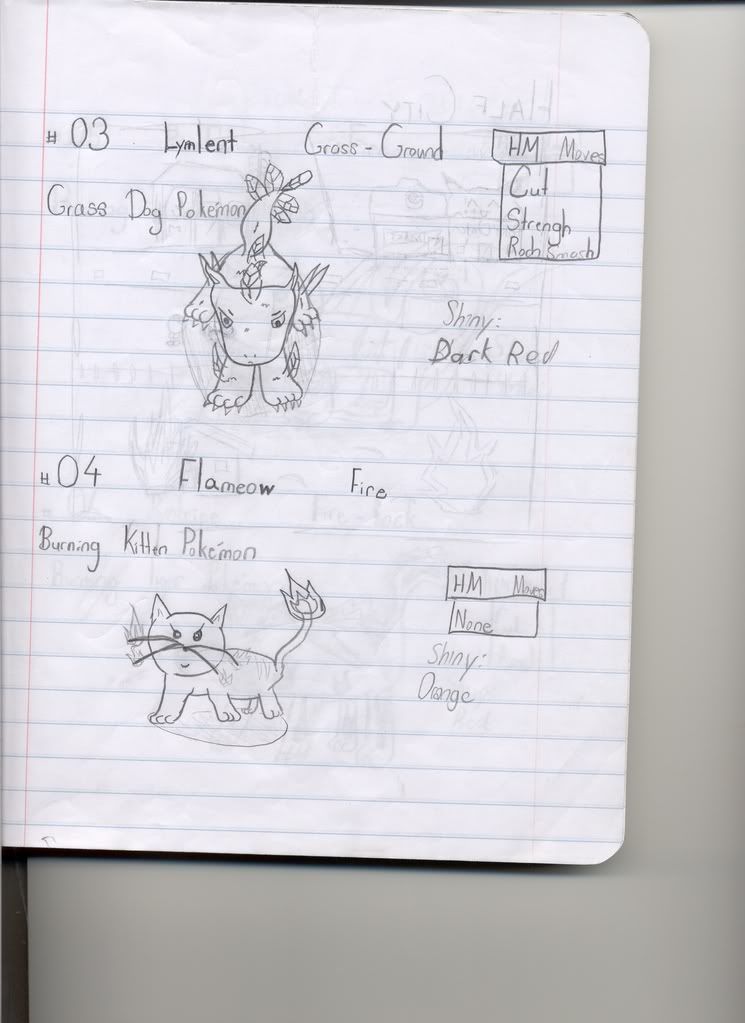 # 03 Lymlent Grass - Ground
HM Moves
Grass Dog Pokémon
Cut
Strengh
Rock Smash
Shiny:
Dark Red
# 04 Flameow Fire
Burning Kitten Pokémon
HM Moves
None
Shiny:
Orange
HALF CITY